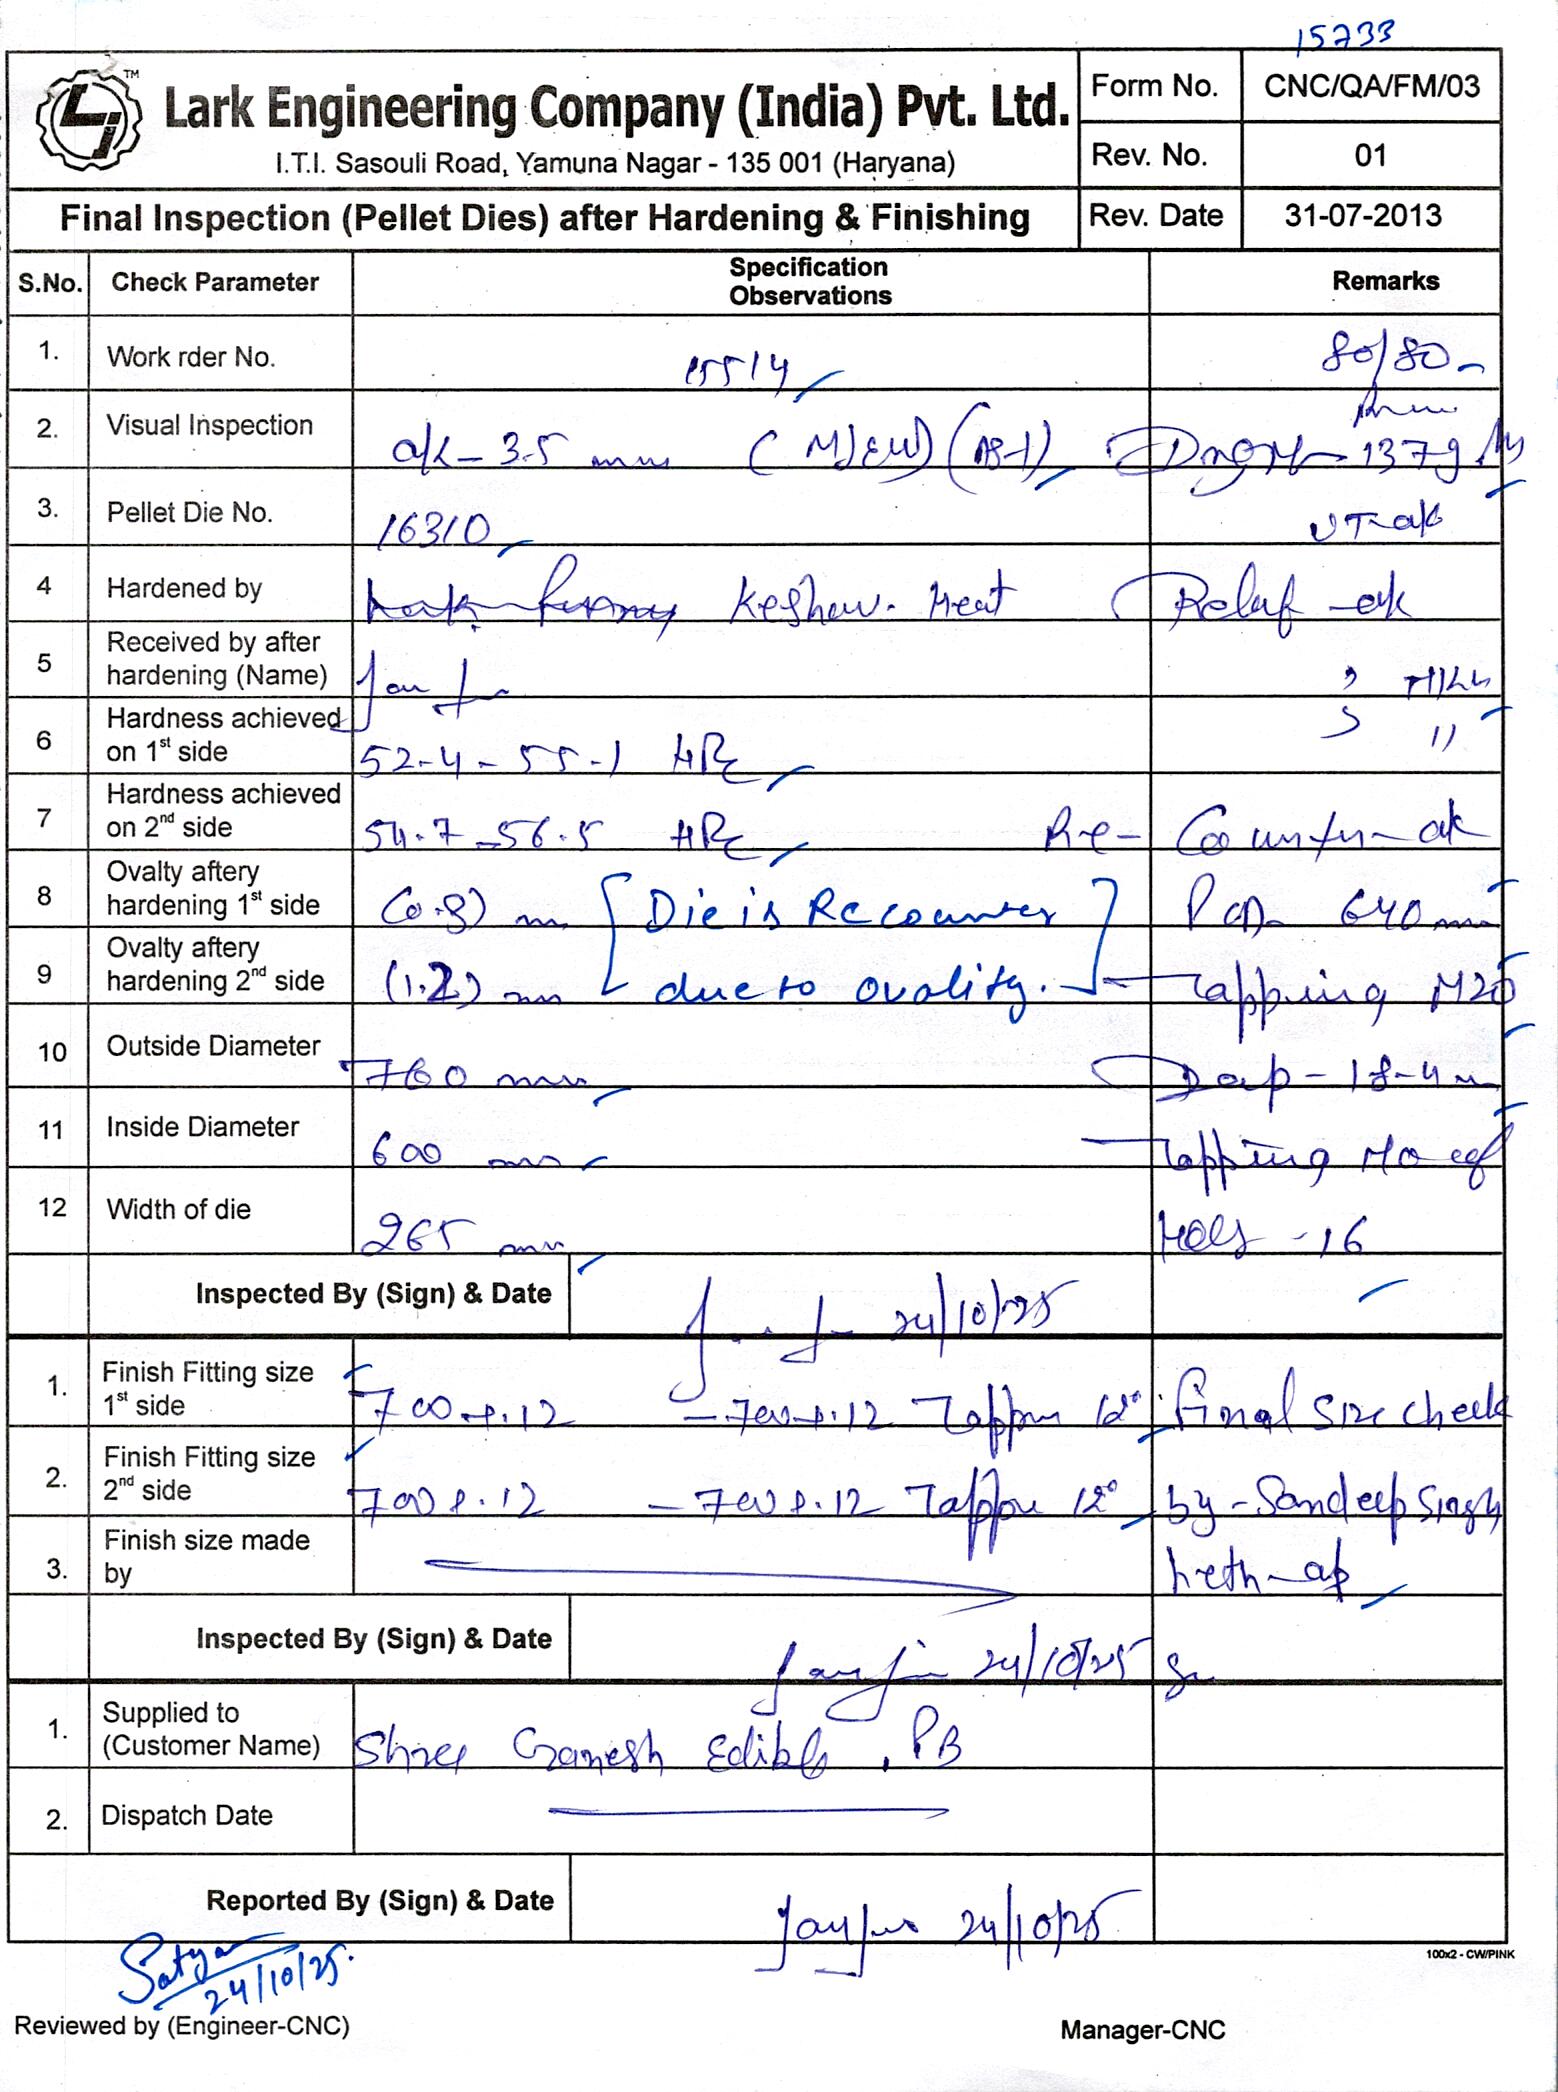 15733
TM
Lark Engineering Company (India) Pvt. Ltd.
I.T.I. Sasouli Road, Yamuna Nagar - 135 001 (Haryana)
Form No. CNC/QA/FM/03
Rev. No. 01
Final Inspection (Pellet Dies) after Hardening & Finishing
Rev. Date 31-07-2013
S.No. Check Parameter Specification Observations Remarks
1. Work rder No. 15514 80/80
2. Visual Inspection o/k - 3.5 mm
3. Pellet Die No. 16310 UT-ok
4 Hardened by Keshav. Heat Relaf -ok
5 Received by after hardening (Name)
6 Hardness achieved on 1st side 52-4 - 55-1 HRC
7 Hardness achieved on 2nd side 54.7 - 56.5 HRC Re- Counter-ok
8 Ovalty aftery hardening 1st side (0.8) mm [Die is Recounter PCD- 640 mm
9 Ovalty aftery hardening 2nd side (1.2) mm due to ovality.] Tapping M20
10 Outside Diameter 760 mm Deep - 18-4 m
11 Inside Diameter 600 mm Tapping No of
12 Width of die 265 mm Hols - 16
Inspected By (Sign) & Date 24/10/25
1. Finish Fitting size 1st side 700+.12 - 700+.12 Tapper 12° Final Size check
2. Finish Fitting size 2nd side 700+.12 - 700+.12 Tapper 12° by - Sandeep Singh
3. Finish size made by
Inspected By (Sign) & Date 24/10/25
1. Supplied to (Customer Name) Shree Ganesh Edible, PB
2. Dispatch Date
Reported By (Sign) & Date 24/10/25
100x2 - CW/PINK
Satyam
24/10/25.
Reviewed by (Engineer-CNC) Manager-CNC